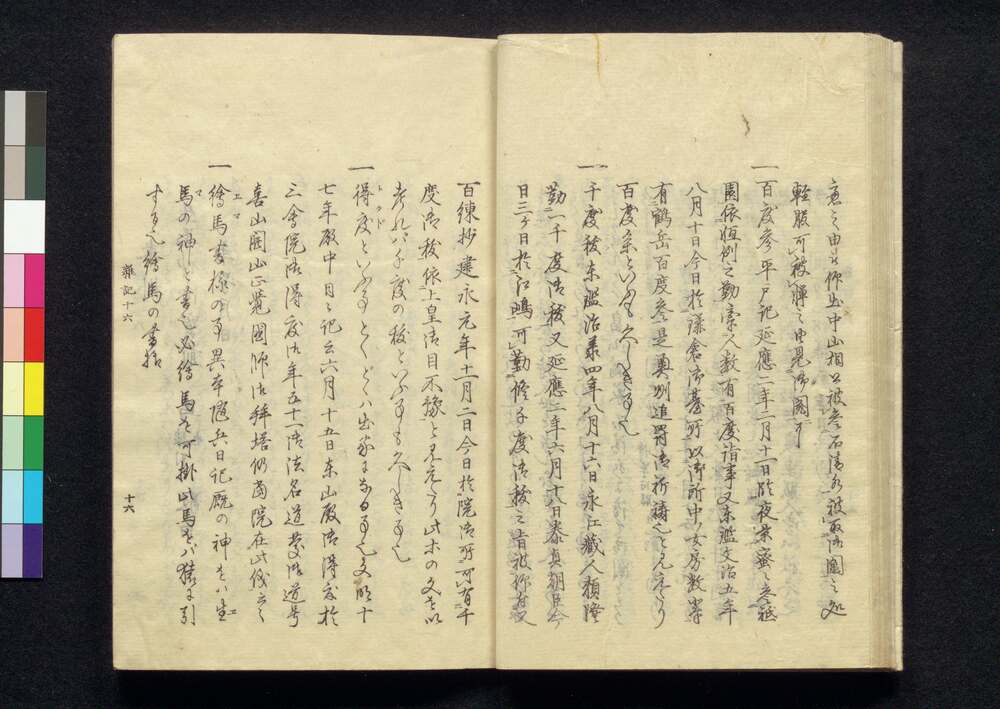 意之由被仰出中山相公被参石清水被取御圖之処
軽服可被憚之由見御圖了
一百度参平戸記延應二年二月十一日臨夜景蜜々参祇
園依恒例之勤案人数有百度詣事又東鑑文治五年
八月十日今日於鎌倉御臺所以御所中女房数輩
有鶴岳百度参是奥州追罸御祈禱也と見えたり
百度参といふも久しき事也
一千度祓東鑑治養四年八月十六日永江蔵人頼隆
勤一千度御祓又延應二年六月十八日泰貞朝臣今
日三ヶ日於江嶋可勤修千度御祓之旨被仰付
百練抄建永元年十一月二日今日於院御所可有千
度御祓依上皇御目不豫と見えたり此ホの文を以
考れバ千度の祓といふ事も久しき事也
一得度といふ事とくどハ出家になる事也文明十
七年殿中日々記云六月十五日東山殿御得度於
三會院御得度御年五十一御法名道慶御道号
喜山開山正覺國師御拝塔仍當院在此儀云々
一繪馬書様の事異本随兵日記厩の神をハ生
馬の神と書也必繪馬を可掛此馬をバ猿に引
する也繪馬の書様
雜記十六
十六